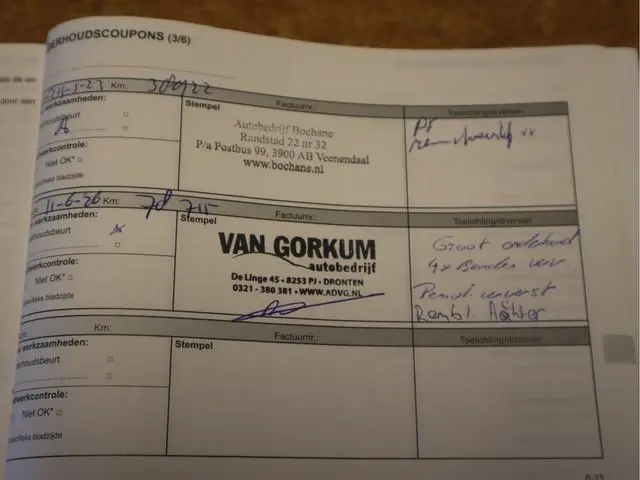 ERHOUDSCOUPONS (3/6)
Km: 38922
werkzaamheden:
houdsbeurt
werkcontrole:
Niet OK*
pecifieke bladzijde
Stempel
Factuurnr.:
Autobedrijf Bochane
Randstad 22 nr 32
P/a Postbus 99, 3900 AB Veenendaal
www.bochane.nl
Toelichting/diversen
11-6-26 Km: 78 715
werkzaamheden:
rhoudsbeurt
dwerkcontrole:
Niet OK*
ecifieke bladzijde
Stempel
Factuurnr.:
VAN GORKUM
autobedrijf
De Linge 45 • 8253 PJ • DRONTEN
0321 - 380 381 • WWW.ADVG.NL
Toelichting/diversen
Groot onderhoud
4x Banden
Remvl. ververst
Achter
Km:
werkzaamheden:
erhoudsbeurt
dwerkcontrole:
Niet OK*
specifieke bladzijde
Stempel
Factuurnr.:
Toelichting/diversen